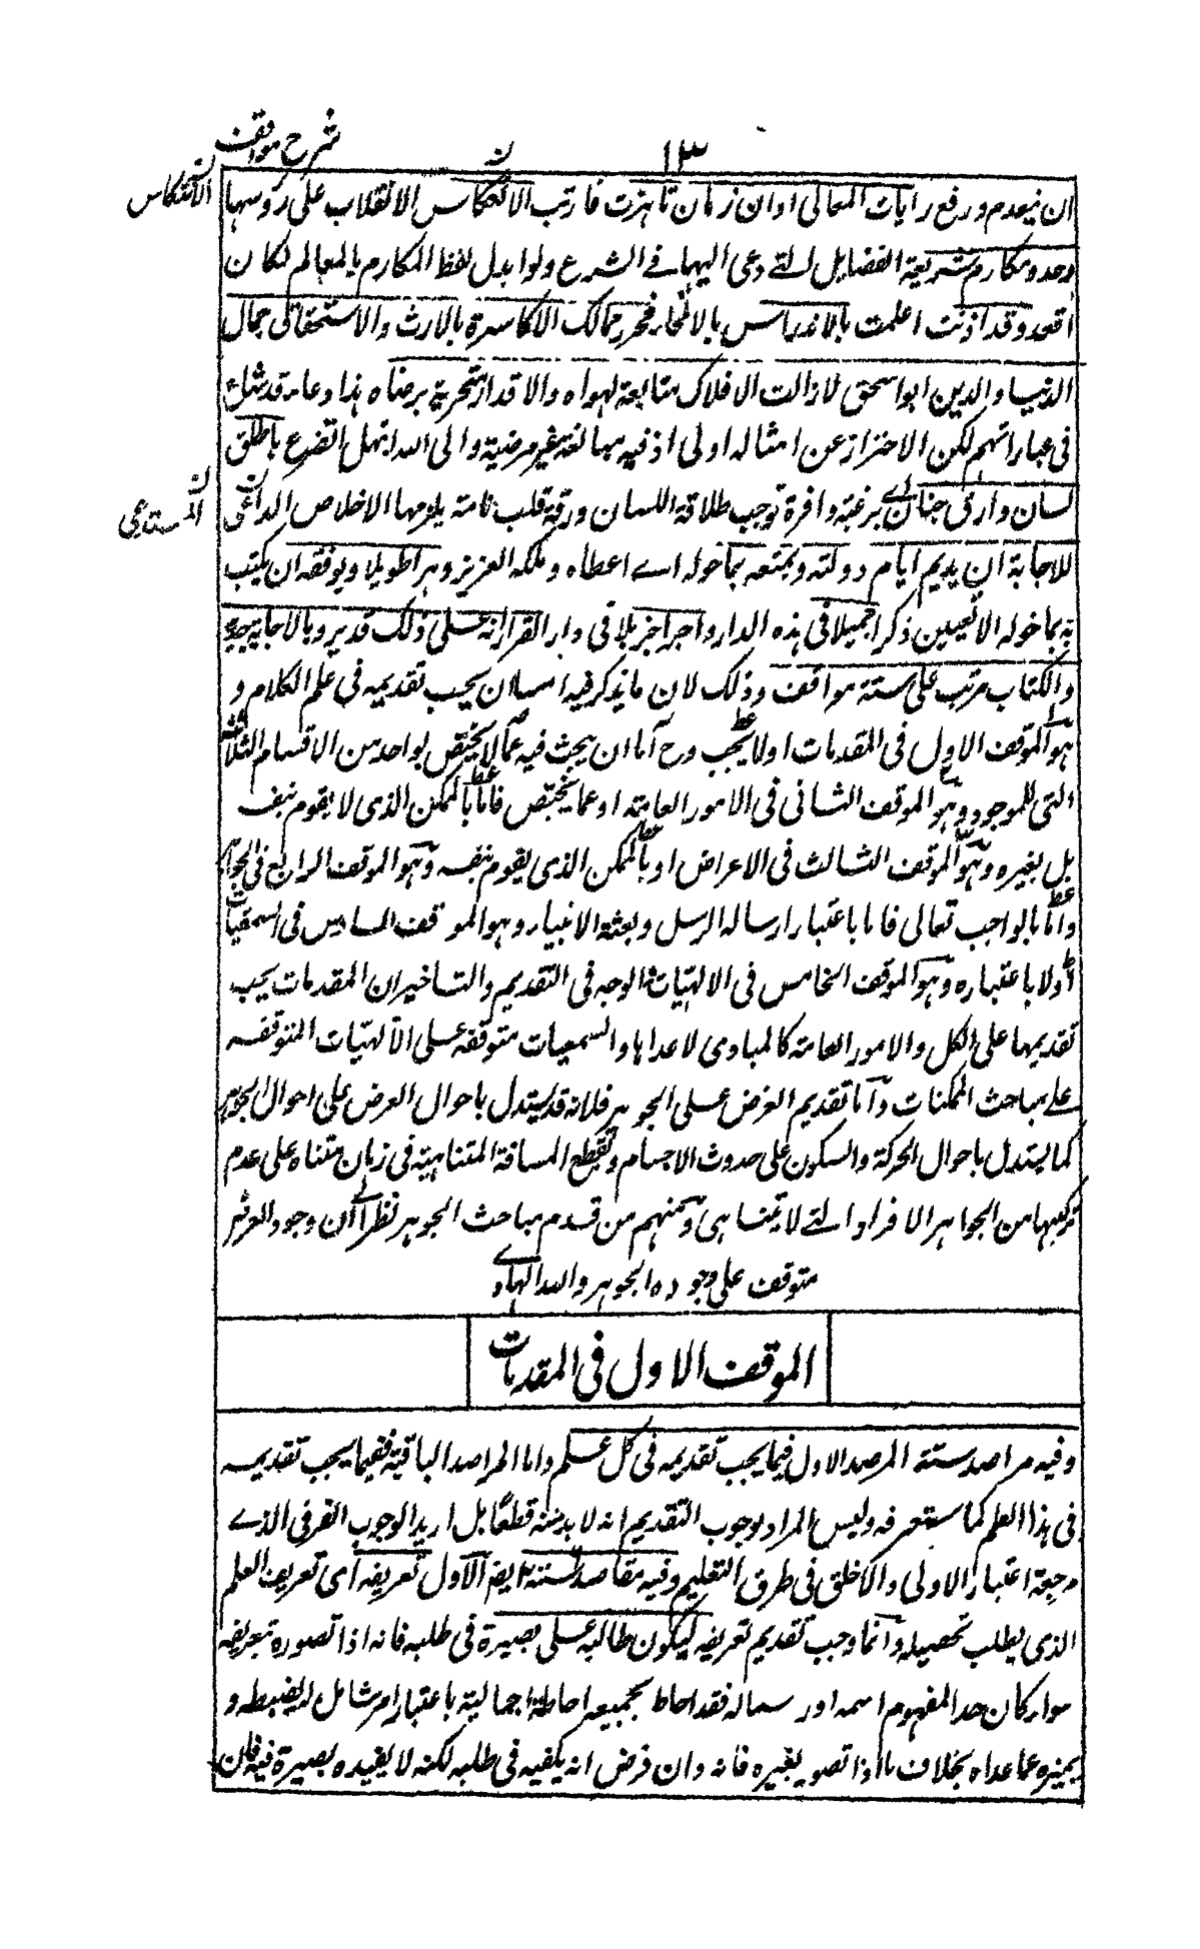 شرح مواقف
١٣
ان ينعدم ورفع رايات المعالى اوان زمان ناهزت قاربت الانعكاس الانقلاب على روسها
الانتكاس
وحدد مكارم شريعة الفضايل التے دعى اليها فے الشرع ولو ابدل لفظ المكارم بالمعالم لكان
اقعد وقد اذنت اعلمت بالاندراس بالانمحاء فحرر ممالك الاكاسرة بالارث والاستحقاق جمال
الدنيا والدين ابو اسحق لا زالت الافلاك متابعة لهواه والاقدار متحرية برضاه هذا دعاء قد شاع
فى عباراتهم لكن الاحتراز عن امثاله اولى اذ فيه مبالغة غير مرضية والى الله ابتهل اتضرع باطلق
لسان وارق جنان اے برغبة وافرة توجب طلاقة اللسان ورقة قلب تامة يلزمها الاخلاص الداعى
المستدعى
للاجابة ان يديم ايام دولته ويمتعه بما خوله اے اعطاه وملكه العزيز دهرا طويلا ويوفقه ان يكتسب
به بما خوله الانعمين ذكرا جميلا فى هذه الدار واجرا جزيلا فى دار القرار انه على ذلك قدير وبالاجابة جدير
والكتاب مرتب على ستة مواقف وذلك لان ما يذكر فيه اما ان يجب تقديمه فى علم الكلام و
هو الموقف الاول فى المقدمات اولا يجب وح اما ان يبحث فيه عما لا يختص بواحد من الاقسام الثلاثة
التى للموجود وهو الموقف الثانى فى الامور العامة او عما يختص فاما بالممكن الذى لا يقوم بنفسه
بل بغيره وهو الموقف الثالث فى الاعراض او بالممكن الذى يقوم بنفسه وهو الموقف الرابع فى الجواهر
واما بالواجب تعالى فاما باعتبار ارساله الرسل وبعثة الانبياء وهو الموقف السادس فى السمعيات
اولا باعتباره وهو الموقف الخامس فى الالهيات والوجه فى التقديم والتاخير ان المقدمات يجب
تقديمها على الكل والامور العامة كالمبادى لما عداها والسمعيات متوقفة على الالهيات المتوقفة
على مباحث الممكنات واما تقديم العرض على الجوهر فلانه قد يستدل باحوال العرض على احوال الجوهر
كما يستدل باحوال الحركة والسكون على حدوث الاجسام وبقطع المسافة المتناهية فى زمان متناه على عدم
تركبها من الجواهر الافراد التے لا يتناهى ومنهم من قدم مباحث الجوهر نظرا الى ان وجود العرض
متوقف على وجود الجوهر والله الهادے
الموقف الاول فى المقدمات
وفيه مراصد ستة المرصد الاول فيما يجب تقديمه فى كل علم واما المراصد الباقية ففيما يجب تقديمه
فى هذا العلم كما ستعرفه وليس المراد بوجوب التقديم انه لا بد منه قطعا بل اريد الوجوب العرفى الذے
مرجعه اعتبار الاولى والاخلق فى طرق التعليم وفيه مقاصد ستة ايضا الاول تعريفه اى تعريف العلم
الذى يطلب تحصيله وانما وجب تقديم تعريفه ليكون طالبه على بصيرة فى طلبه فانه اذا تصوره بتعريفه
سواء كان حدا لمفهوم اسمه او رسما له فقد احاط بجميعه احاطة اجمالية باعتبار امر شامل له يضبطه و
يميزه عما عداه بخلاف ما اذا تصوره بغيره فانه وان فرض انه يكفيه فى طلبه لكنه لا يفيده بصيرة فيه فان